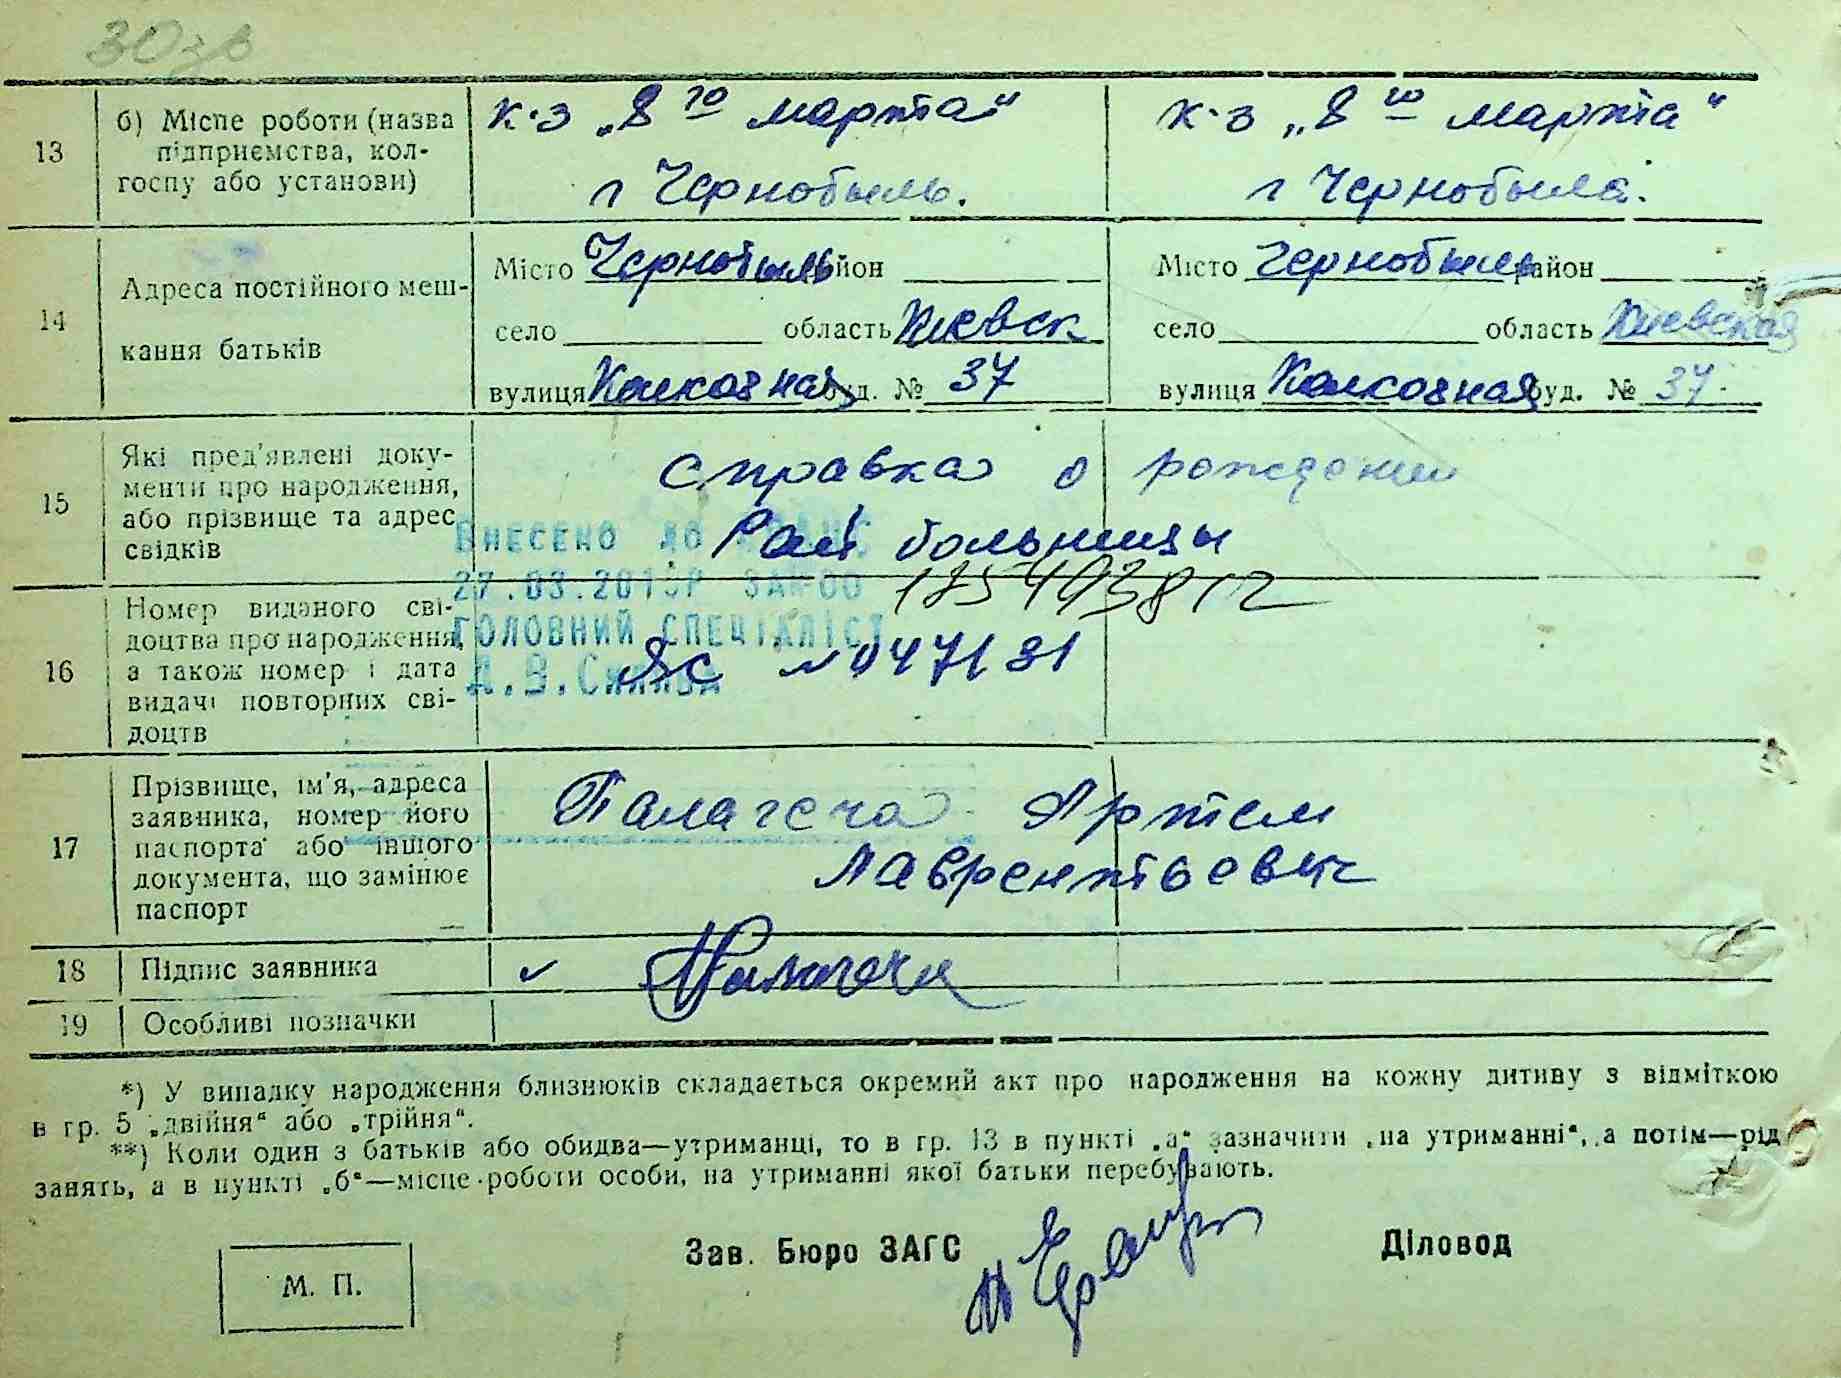 13
б) Місце роботи (назва
підприємства, кол-
госпу або установи)
к-з „8 го марта"
г Чернобыль.
к-з „8 го марта"
г Чернобыля.
14
Адреса постійного меш-
кання батьків
Місто Чернобыль район
село область Киевск
вулиця Колхозная буд. № 37
Місто Чернобыль район
село область Киевская
вулиця Колхозная буд. № 37.
15
Які пред'явлені доку-
менти про народження,
або прізвище та адрес
свідків
справка о рождении
Рай больницы
Внесено до
27.03.201
головний спеціаліст
16
Номер виданого сві-
доцтва про народження,
а також номер і дата
видачі повторних сві-
доцтв
ЯС № 047131
17
Прізвище, ім'я, адреса
заявника, номер його
паспорта або іншого
документа, що замінює
паспорт
Палагеча Артем
Лаврентьевич
18
Підпис заявника
✓ Палагеча
19
Особливі позначки
*) У випадку народження близнюків складається окремий акт про народження на кожну дитину з відміткою
в гр. 5 „двійня" або „трійня".
**) Коли один з батьків або обидва—утриманці, то в гр. 13 в пункті „а" зазначити „на утриманні", а потім—рід
занять, а в пункті „б"—місце роботи особи, на утриманні якої батьки перебувають.
Зав. Бюро ЗАГС
Діловод
М. П.